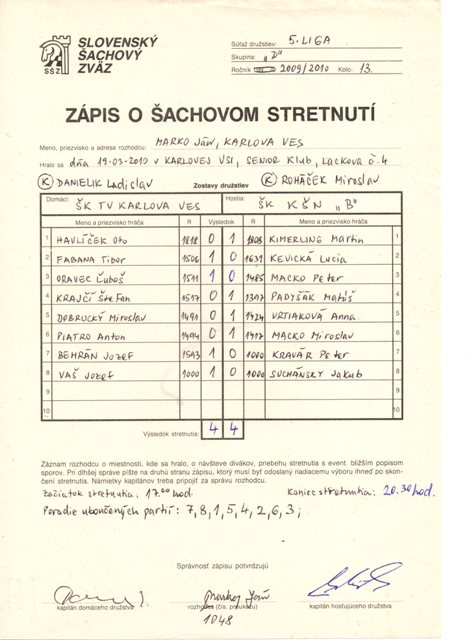 SLOVENSKÝ
ŠACHOVÝ
ZVÄZ
SŠZ
Súťaž družstiev: 5. LIGA
Skupina: „D"
Ročník 2009/2010 Kolo: 13.
ZÁPIS O ŠACHOVOM STRETNUTÍ
Meno, priezvisko a adresa rozhodcu: MARKO Ján, KARLOVA VES
Hralo sa dňa 19-03-2010 v KARLOVEJ VSI, SENIOR KLUB, Lackova č. 4
K DANIELIK Ladislav Zostavy družstiev K ROHÁČEK Miroslav
Domáci: ŠK TV KARLOVA VES Hostia: ŠK KŠN „B"
Meno a priezvisko hráča R Výsledok R Meno a priezvisko hráča
1 HAVLÍČEK Oto 1818 0 1 1808 KIMERLING Martin 1
2 FABANA Tibor 1506 1 0 1631 KEVICKÁ Lucia 2
3 ORAVEC Ľuboš 1511 1 0 1485 MACKO Peter 3
4 KRAJČÍ Štefan 1517 0 1 1397 PADYŠÁK Matúš 4
5 DOBRUCKÝ Miroslav 1491 0 1 1424 VRTIAKOVÁ Anna 5
6 PIATRO Anton 1494 0 1 1497 MACKO Miroslav 6
7 BEHRÁN Jozef 1593 1 0 1000 KRAVÁR Peter 7
8 VAŠ Jozef 1000 1 0 1000 SUCHÁNSKY Jakub 8
9 9
10 10
Výsledok stretnutia: 4 4
Záznam rozhodcu o miestnosti, kde sa hralo, o návšteve divákov, priebehu stretnutia s event. bližším popisom
sporov. Pri dlhšej správe píšte na druhú stranu zápisu, ktorý musí byť odoslaný riadiacemu výboru ihneď po skon-
čení stretnutia. Námietky kapitánov treba pripojiť za správu rozhodcu.
Začiatok stretnutia: 17.00 hod. Koniec stretnutia: 20.30 hod.
Poradie ukončených partií: 7, 8, 1, 5, 4, 2, 6, 3;
Správnosť zápisu potvrdzujú
kapitán domáceho družstva rozhodca (čís. preukazu) kapitán hosťujúceho družstva
1048